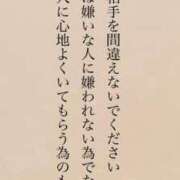 相手を間違えないでください
は嫌いな人に嫌われない為でな
人に心地よくいてもらう為のも